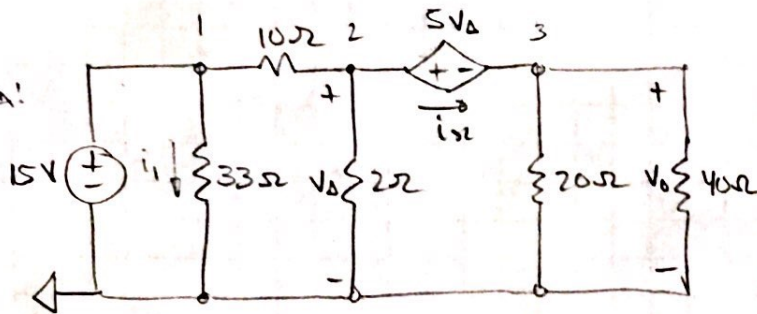 1 10Ω 2 5VΔ 3
+ + - +
iΩ
15V + - i₁ 33Ω VΔ 2Ω 20Ω V₀ 40Ω
- -